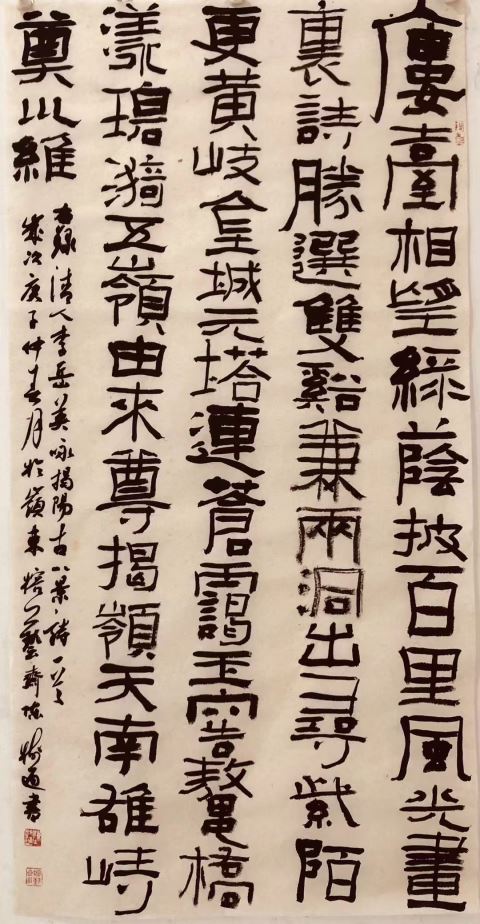 廔臺相望綠蔭披百里風光畫
裏詩勝選雙谿兼兩洞出尋紫陌
更黃岐金城元塔連蒼靄玉窖鼇橋
漾碧漪五嶺由來尊揭嶺天南雄峙
奠川維
右錄清人李岳英咏揭陽古八景詩一首
歲次庚子仲春月於嶺東榕藝齋陳書